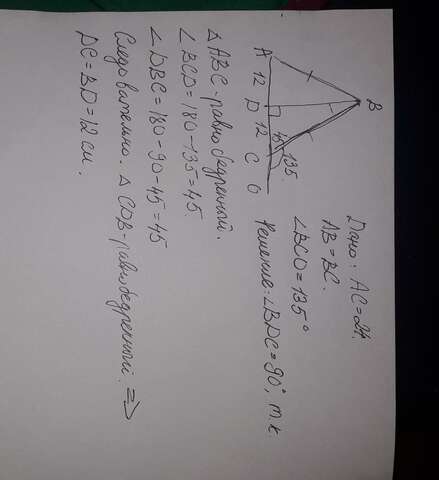 B
A 12 D 12 C O
45 135
Дано: AC=24.
AB=BC.
∠BCO=135°
Решение: ∠BDC=90°, т.к.
△ABC-равнобедренный.
∠BCD=180-135=45
∠DBC=180-90-45=45
Следовательно. △CDB-равнобедренный. ⇒
DC=BD=12 см.